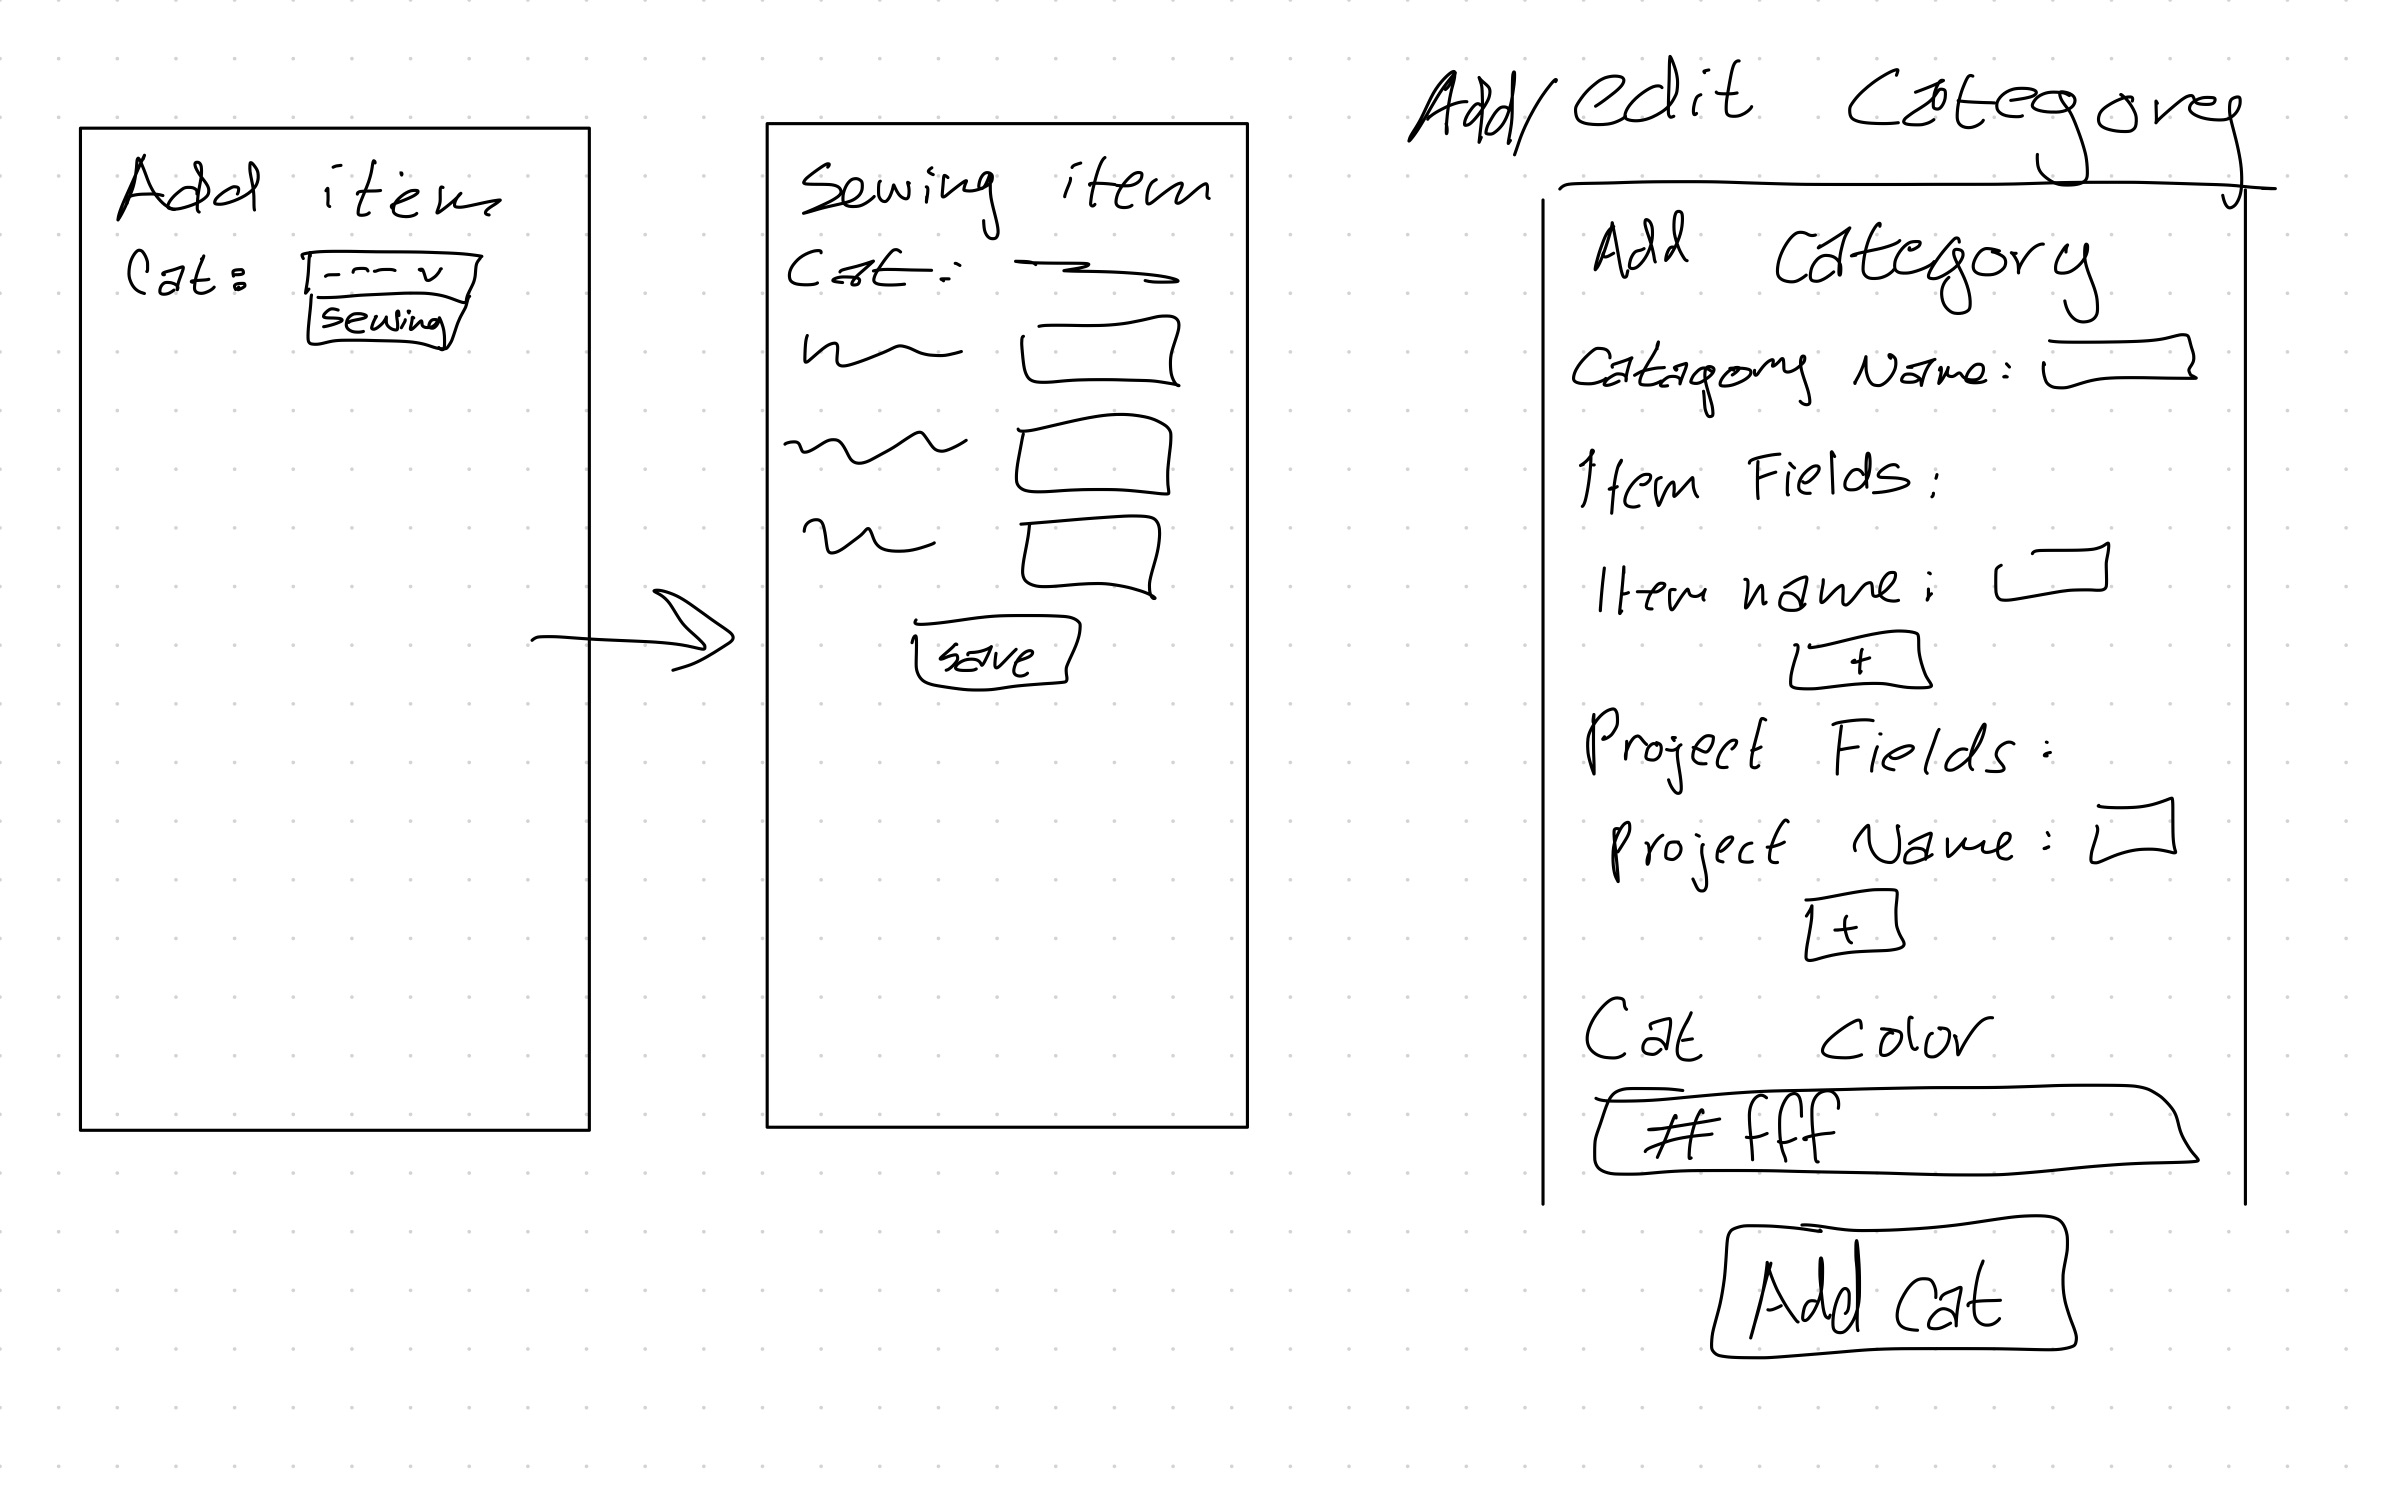 Add item
Cat:
sewing
Sewing item
Cat:
save
Add/edit Category
Add Category
Category Name:
Item Fields:
Item name:
+
Project Fields:
Project Name:
+
Cat color
#fff
Add cat